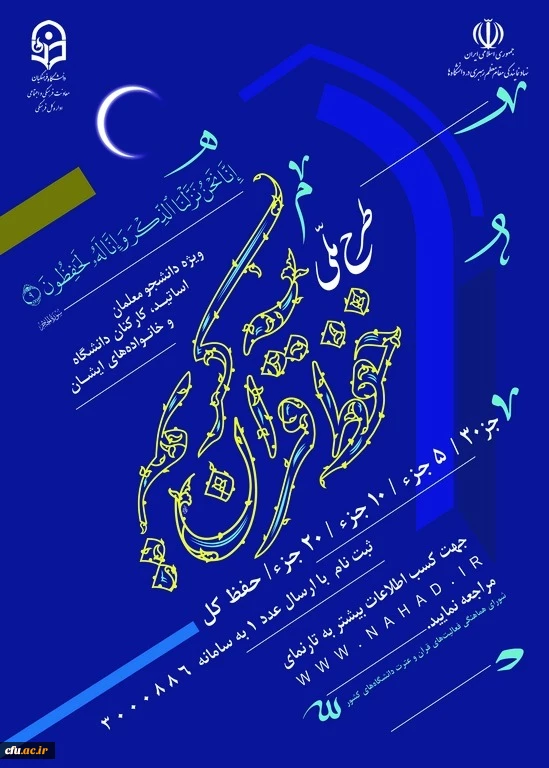 جمهوری اسلامی ایران
نهاد نمایندگی مقام معظم رهبری در دانشگاه‌ها
دانشگاه فرهنگیان
معاونت فرهنگی و اجتماعی
اداره کل فرهنگی
إِنَّا نَحْنُ نَزَّلْنَا الذِّكْرَ وَإِنَّا لَهُ لَحَافِظُونَ ۹
ویژه دانشجو معلمان
اساتید، کارکنان دانشگاه
و خانواده‌های ایشان
طرح ملّی
حفظ قرآن کریم
جزء ۳۰ / ۵ جزء / ۱۰ جزء / ۲۰ جزء / حفظ کل
ثبت نام با ارسال عدد ۱ به سامانه ۳۰۰۰۸۸۶
جهت کسب اطلاعات بیشتر به تارنمای
WWW.NAHAD.IR
مراجعه نمایید.
شورای هماهنگی فعالیت‌های قرآن و عترت دانشگاه‌های کشور
cfu.ac.ir